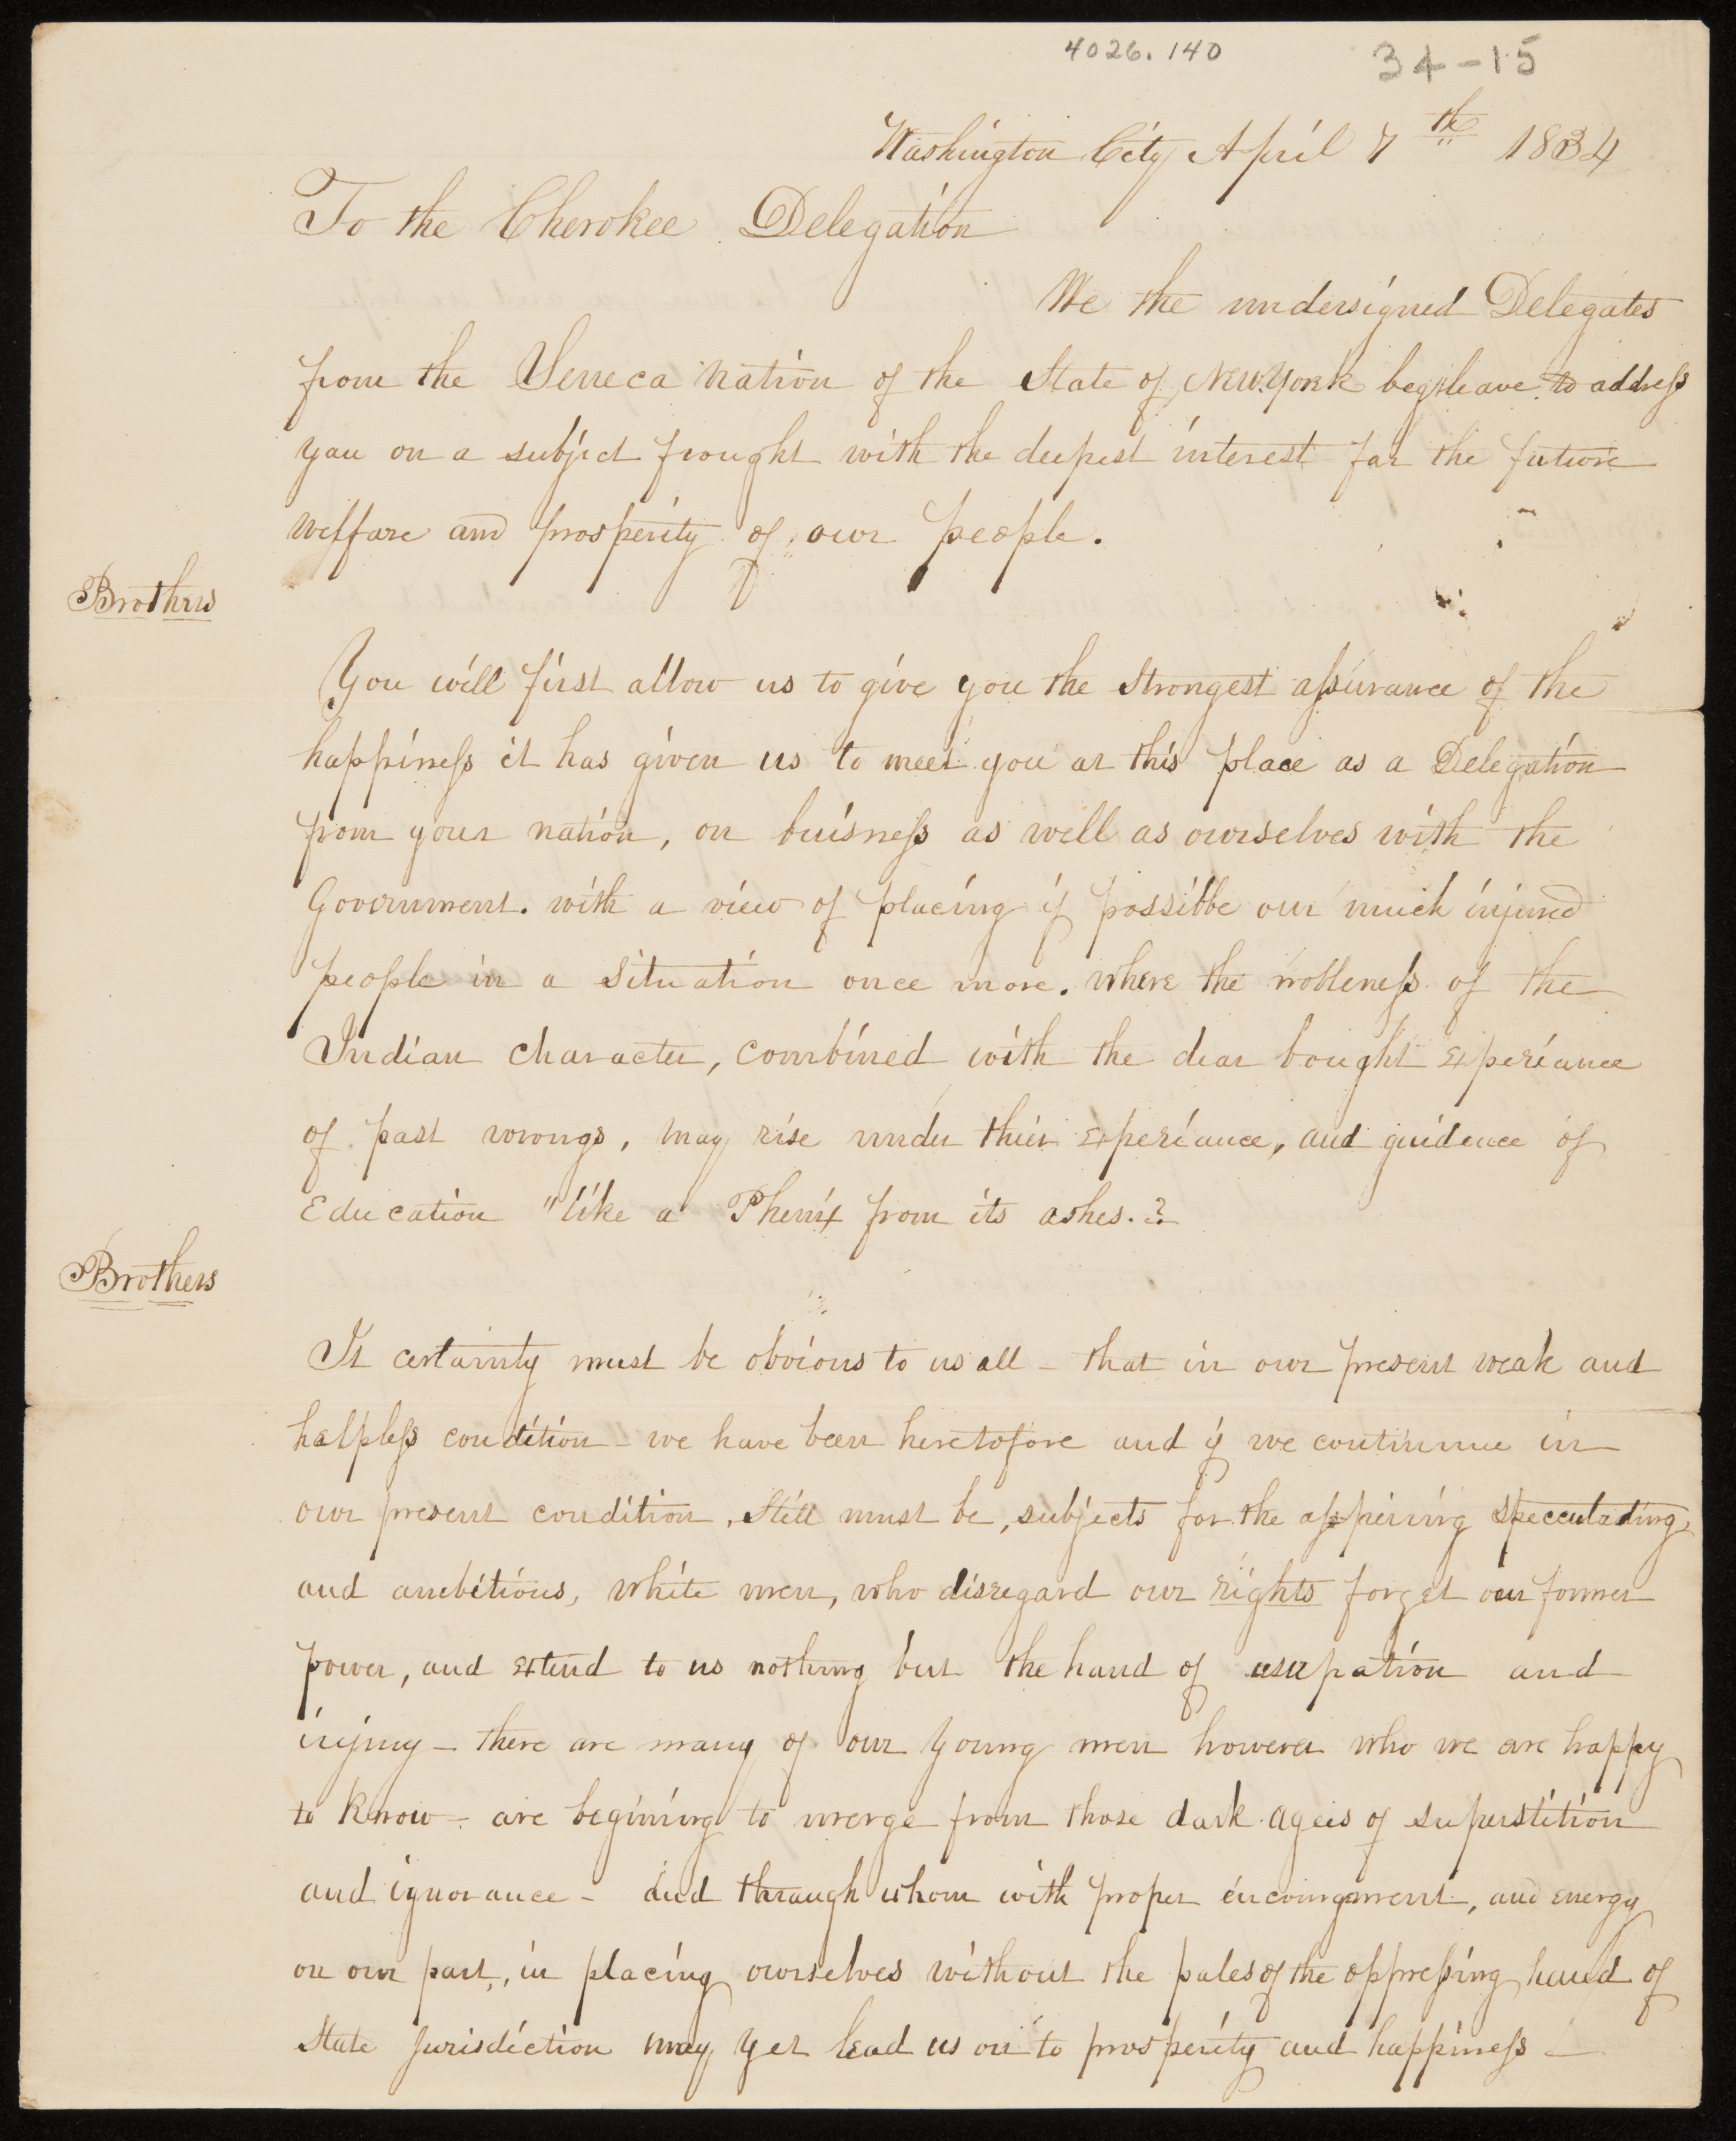 4026.140 34-15
Washington City April 7th 1834
To the Cherokee Delegation
We the undersigned Delegates
from the Seneca nation of the State of New York beg leave to address
you on a subject frought with the deepest interest for the future
welfare and prosperity of our people.
Brothers
You will first allow us to give you the strongest assurance of the
happiness it has given us to meet you at this place as a Delegation
from your nation, on buisness as well as ourselves with the
Government. with a view of placing if possible our much injured
people in a situation once more. where the nobleness of the
Indian character, combined with the dear bought experiance
of past wrongs, may rise under thier experiance, and guidence of
Education "like a Phenix from its ashes.
Brothers
It certainty must be obvious to us all - that in our present weak and
helpless condition - we have been heretofore and if we continue in
our present condition, still must be, subjects for the aspiring speculating
and ambitious, white men, who disregard our rights forget our former
power, and extend to us nothing but the hand of usupation and
injury - there are many of our young men however who we are happy
to know - are begining to merge from those dark ages of superstition
and ignorance - and through whom with proper encouragment, and energy
on our part, in placing ourselves without the pales of the oppressing hand of
State jurisdiction may yet lead us on to prosperity and happiness -